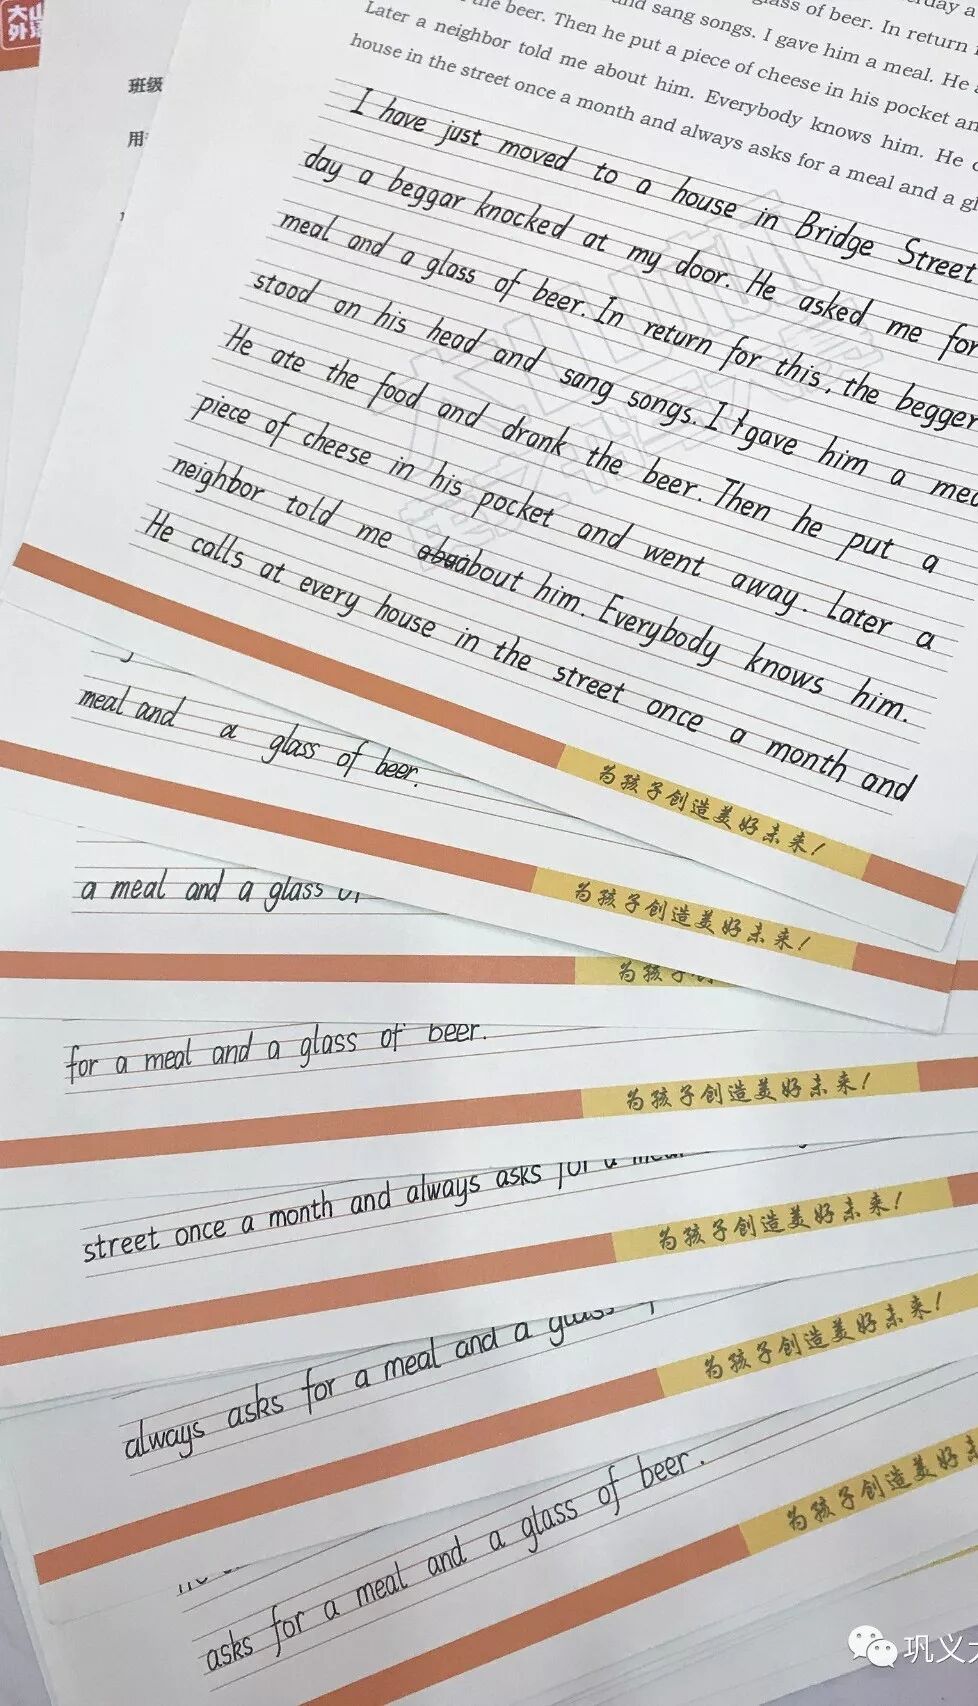 大山
外语
班级
用
the beer. Then he put a piece of cheese in his pocket
and sang songs. I gave him a meal. He
glass of beer. In return
Later a neighbor told me about him. Everybody knows him. He
house in the street once a month and always asks for a meal and a
I have just moved to a house in Bridge Street
day a beggar knocked at my door. He asked me for
meal and a glass of beer. In return for this, the begger
stood on his head and sang songs. I gave him a
He ate the food and drank the beer. Then he put a
piece of cheese in his pocket and went away. Later a
neighbor told me about him. Everybody knows him.
He calls at every house in the street once a month and
为孩子创造美好未来!
meal and a glass of beer.
为孩子创造美好未来!
a meal and a glass of
为孩子创
for a meal and a glass of beer.
为孩子创造美好未来!
street once a month and always asks for a meal
为孩子创造美好未来!
always asks for a meal and a glass
为孩子创造美好未来!
asks for a meal and a glass of beer.
为孩子创造美好未
巩义